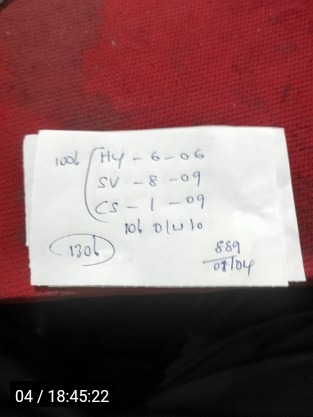 1006 HY - 6 - 06
SV - 8 - 09
CS - 1 - 09
106 D/W 10
1306
889
04 / 18:45:22